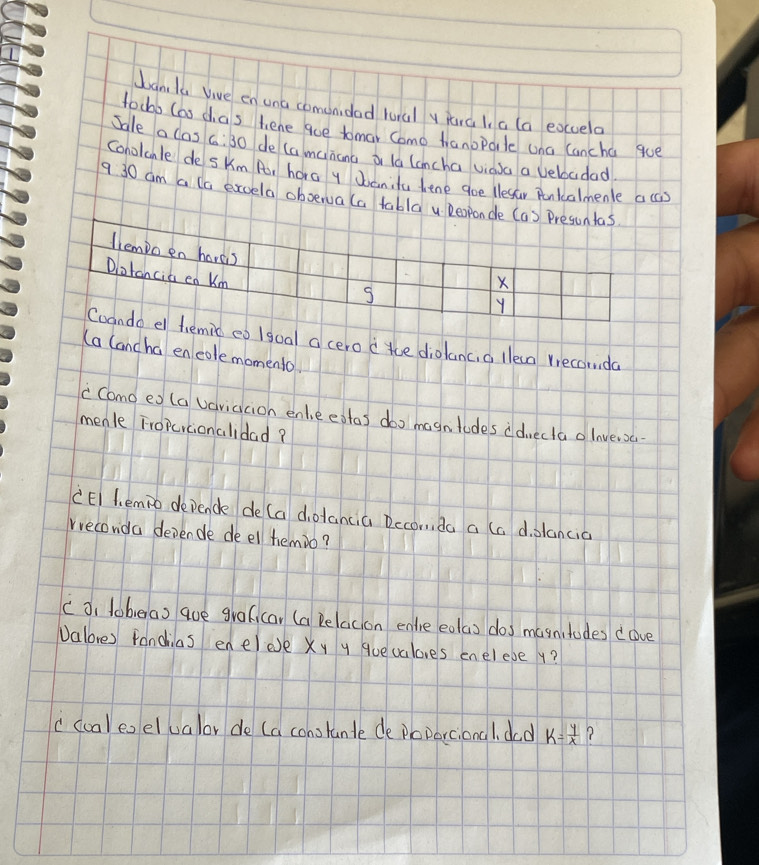 Juanita vive en una comunidad rural y para ir a la escuela
todos los dias tiene que tomar como transporte una lancha que
Sale a las 6:30 de la mañana y la lancha viaja a velocidad
Constante de 5 Km Por hora y Juanita tiene que llegar Puntualmente a las
9 30 am a la escuela observa la tabla y Responde las Preguntas.
tiempo en horas X
Distancia en Km 5 y
Cuando el tiempo es Igual a cero ¿ que distancia lleva recorrida
la lancha en este momento.
¿ Como es la variacion entre estas dos magnitudes ¿ directa o Inversa-
mente Proporcionalidad ?
¿ El tiempo depende de la distancia Recorrida o la distancia
rrecorrida depende de el tiempo ?
¿ si tubieras que graficar la Relacion entre estas dos magnitudes ¿ que
Valores Pondrias en el eje X y y que valores en el eje y ?
¿ cual es el valor de la constante de Proporcionalidad K = y/x ?